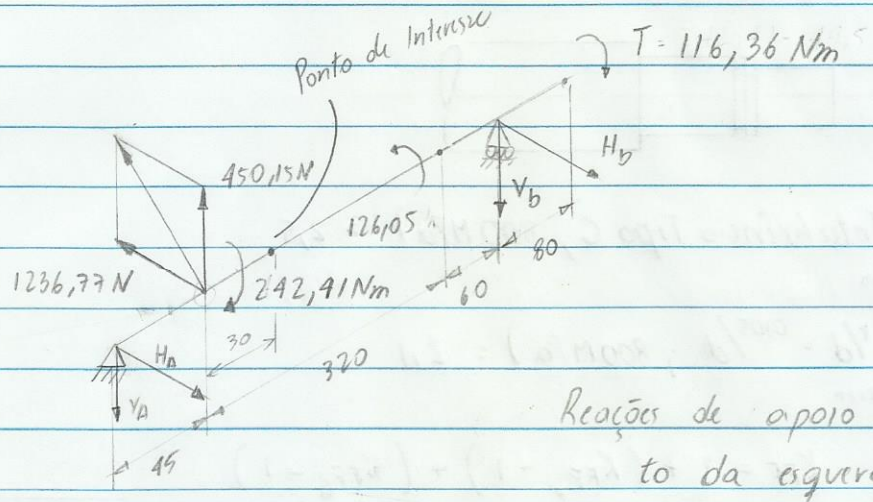 Ponto de Interesse
T = 116,36 Nm
450,15N
Hb
Vb
126,05
80
1236,77N
242,41Nm
60
30
HA
320
VA
45
Reações de apoio
to da esquer